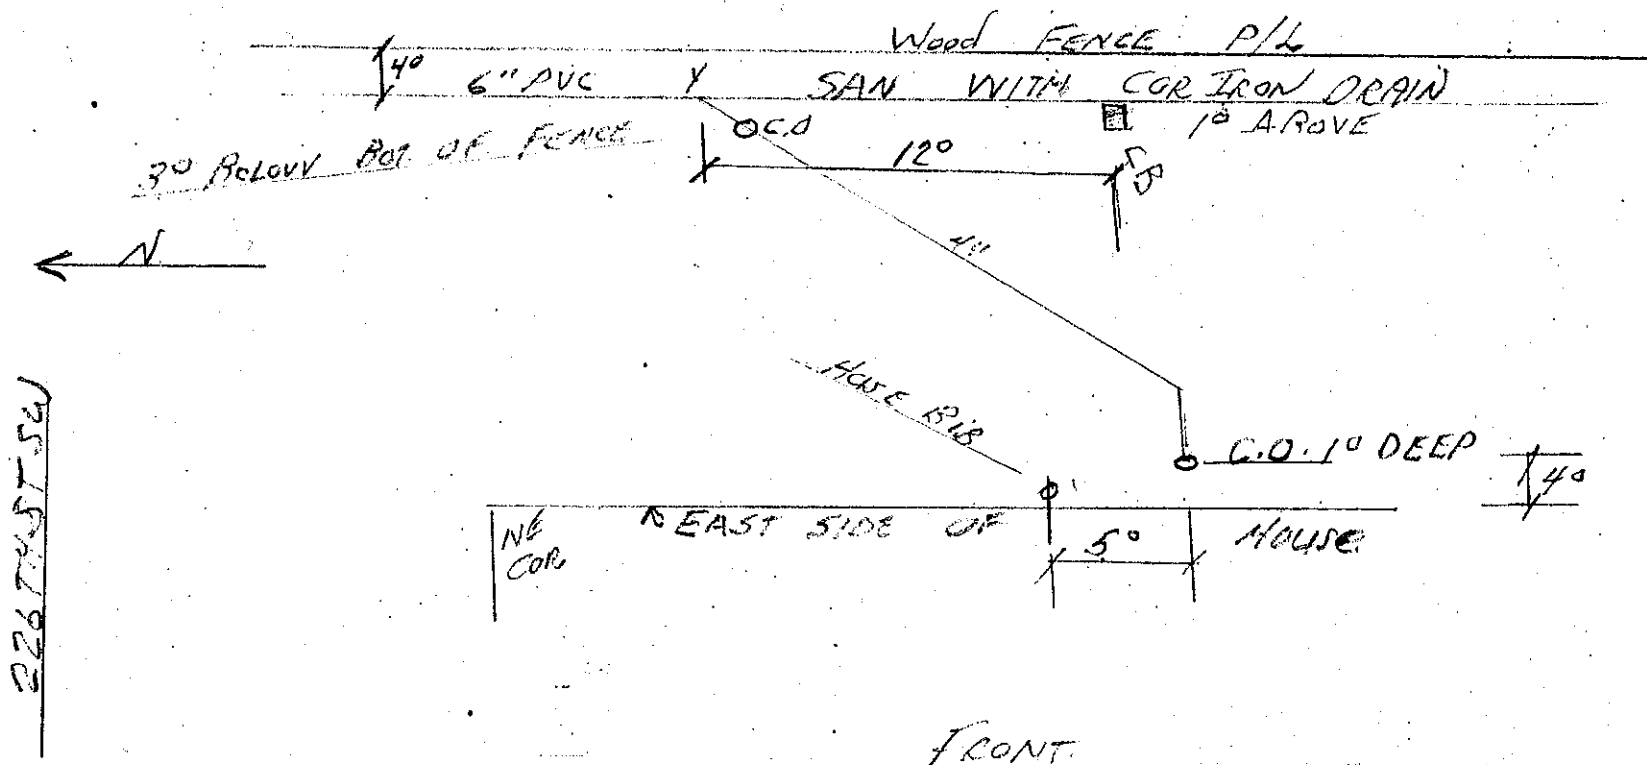 Wood FENCE P/L
4º
6" PVC Y SAN WITH COR IRON DRAIN
C.O
1º ABOVE
3º BELOW BOT OF FENCE
12º
N
4"
HOSE BIB
C.O. 1º DEEP
4º
NE COR
EAST SIDE OF HOUSE
5º
226TH ST SW
FRONT